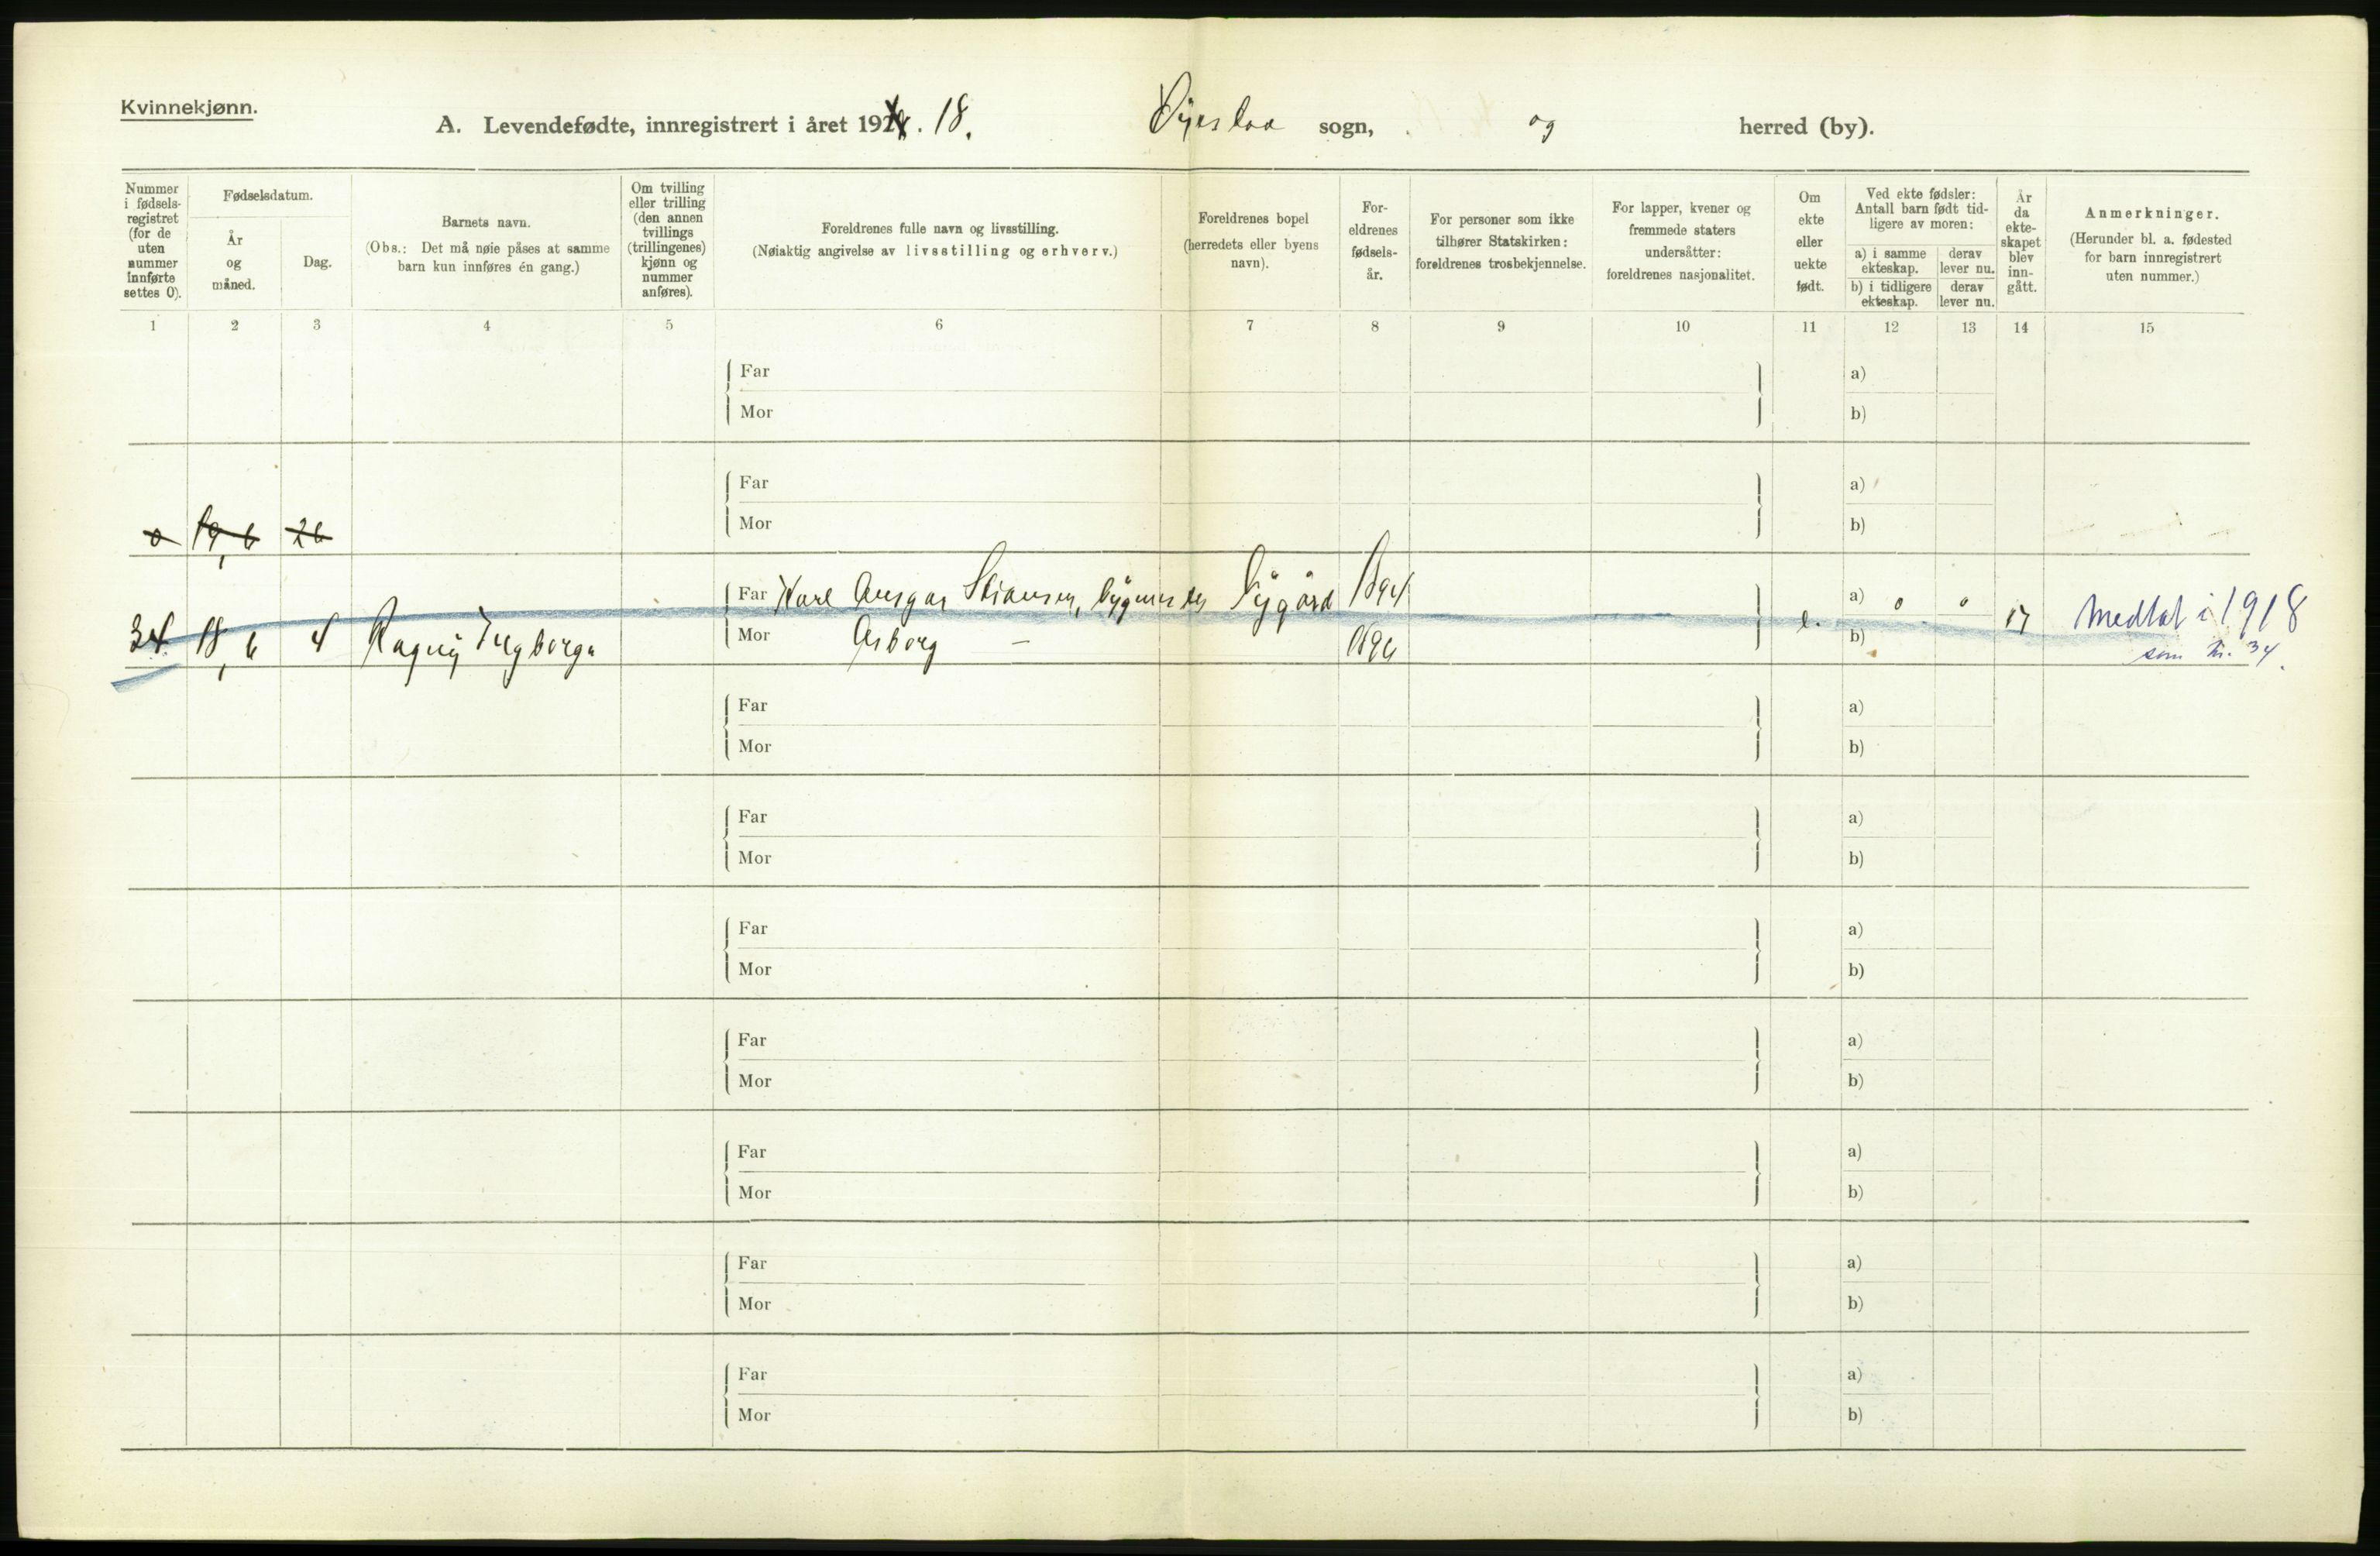 Kvinnekjønn.
A. Levendefødte, innregistrert i året 192 . 18. Øyeslaa sogn, og herred (by).
Nummer i fødsels-registret (for de uten nummer innførte settes 0).
Fødselsdatum.
År og måned.
Dag.
Barnets navn.
(Obs.: Det må nøie påses at samme barn kun innføres én gang.)
Om tvilling eller trilling (den annen tvillings (trillingenes) kjønn og nummer anføres).
Foreldrenes fulle navn og livsstilling.
(Nøiaktig angivelse av livsstilling og erhverv.)
Foreldrenes bopel (herredets eller byens navn).
For-eldrenes fødsels-år.
For personer som ikke tilhører Statskirken: foreldrenes trosbekjennelse.
For lapper, kvener og fremmede staters undersåtter: foreldrenes nasjonalitet.
Om ekte eller uekte født.
Ved ekte fødsler: Antall barn født tid-ligere av moren:
a) i samme ekteskap.
derav lever nu.
b) i tidligere ekteskap.
derav lever nu.
År da ekte-skapet blev inn-gått.
Anmerkninger.
(Herunder bl. a. fødested for barn innregistrert uten nummer.)
1 2 3 4 5 6 7 8 9 10 11 12 13 14 15
Far a)
Mor b)
Far a)
0 19, 6 26 Mor b)
Far Karl Ansgar Stiansen, bygmester Vegård 1894 a) 0 0
34 18, 6 4 Ragny Ingborga Mor Asborg — 1896 e. b) 17 Medtat i 1918
som nr. 34.
Far a)
Mor b)
Far a)
Mor b)
Far a)
Mor b)
Far a)
Mor b)
Far a)
Mor b)
Far a)
Mor b)
Far a)
Mor b)